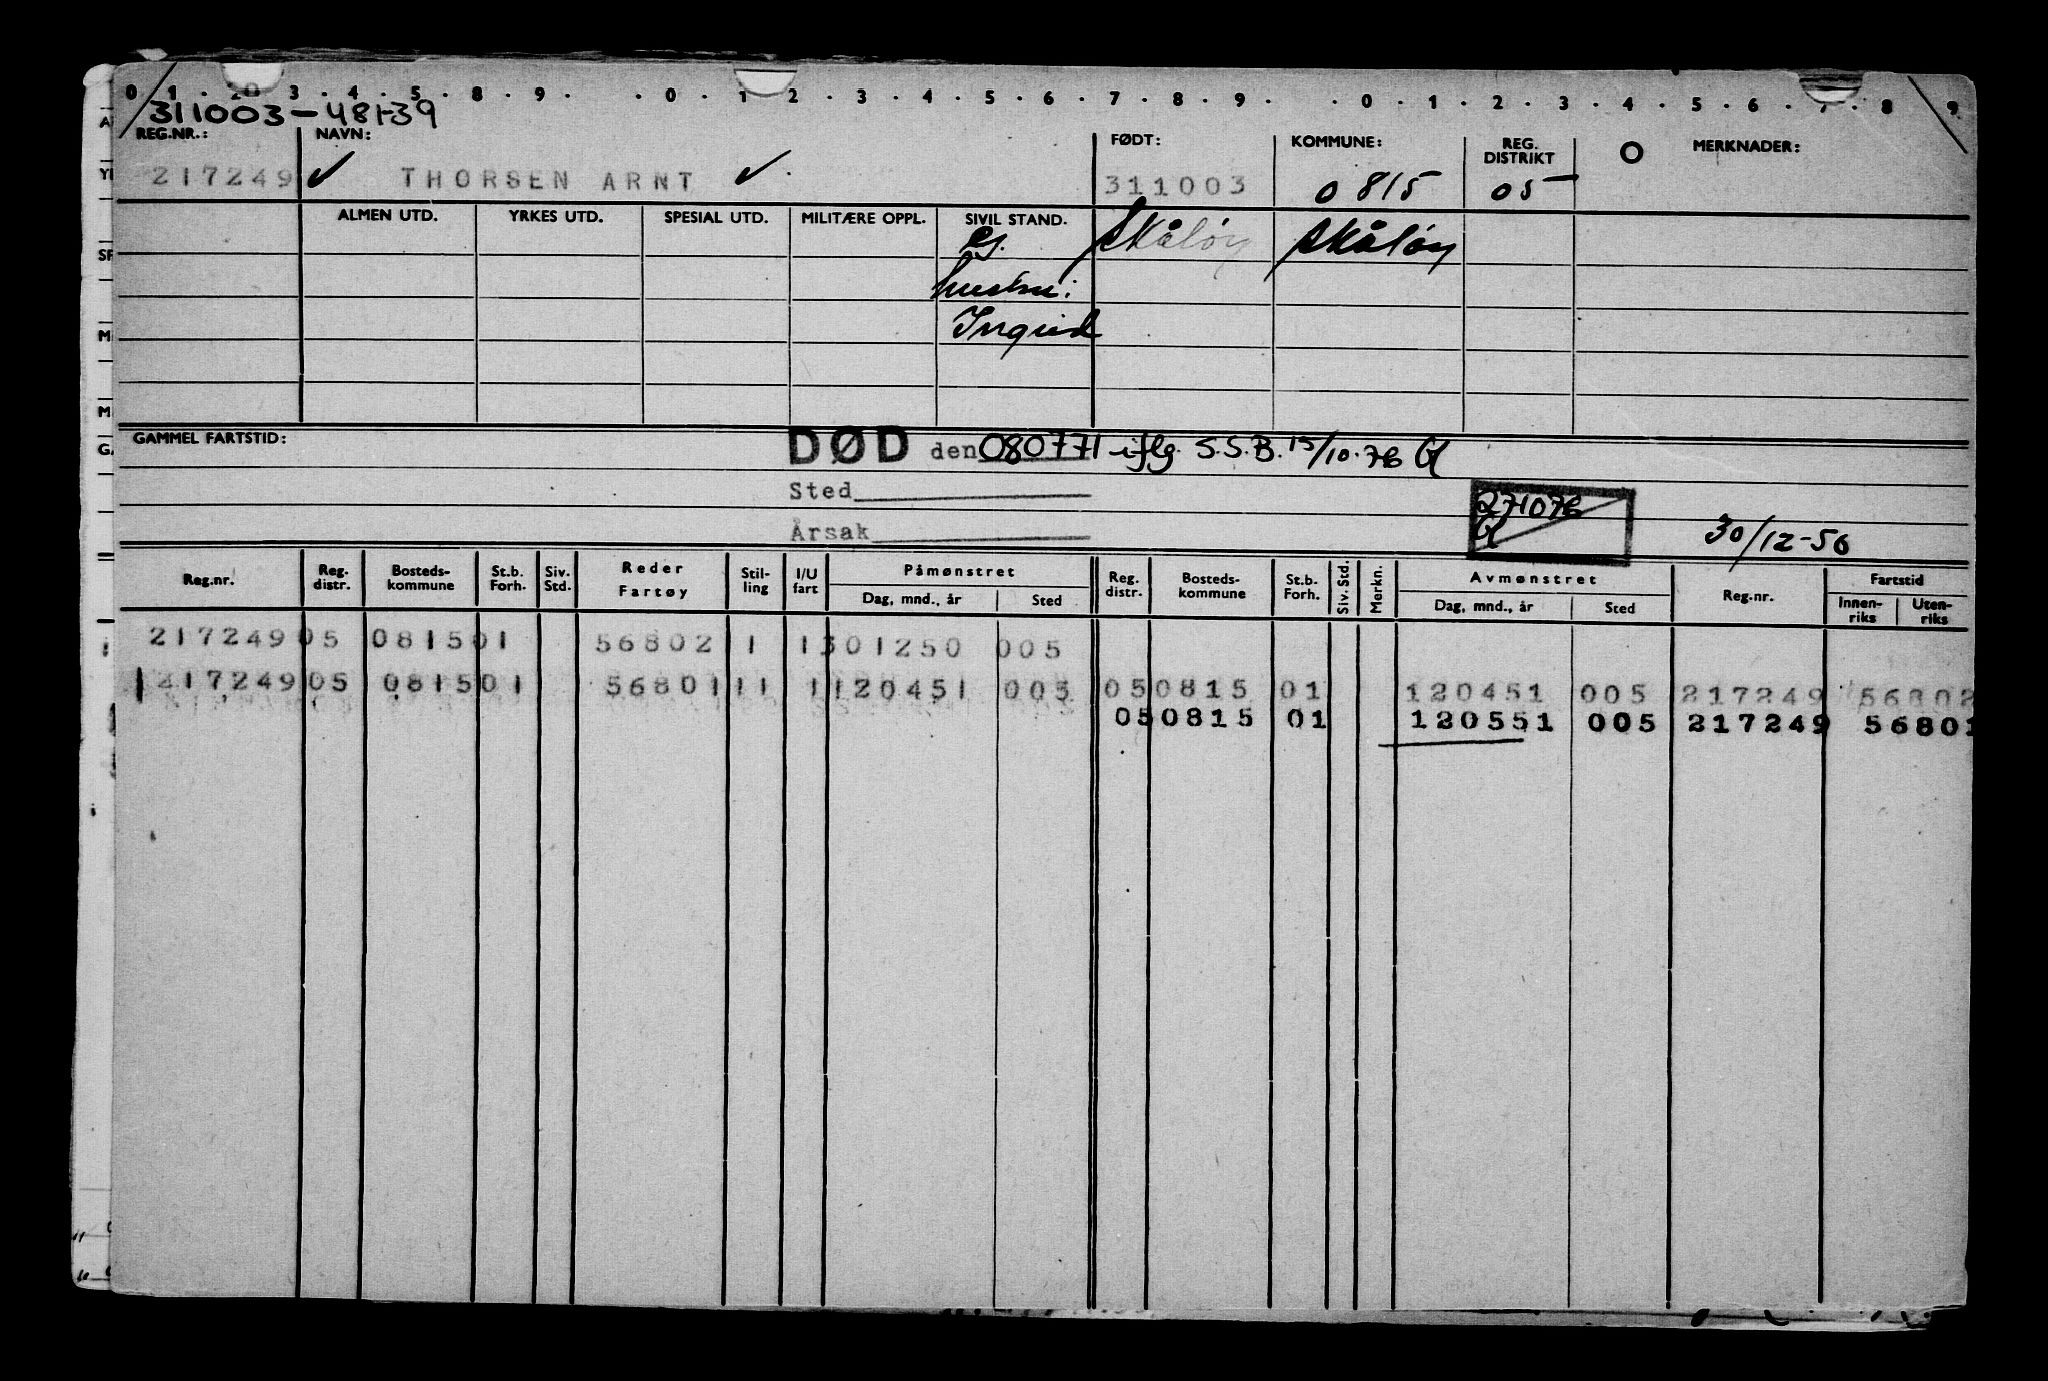 0 . 1 . 20 . 3 . 4 . 5 . 8 . 9 . . 0 . 1 2 . 3 . 4 . 5 . 6 . 7 . 8 . 9 . . 0 . 1 . 2 . 3 . 4 . 5 . 6 . 7 . 8 9
311003-48139
REG.NR.: NAVN: FØDT: KOMMUNE: REG. DISTRIKT O MERKNADER:
217249 ✓ THORSEN ARNT ✓ 311003 0815 05
ALMEN UTD. YRKES UTD. SPESIAL UTD. MILITÆRE OPPL. SIVIL STAND.
g. Skåtøy Skåtøy
hustru:
Ingrid
GAMMEL FARTSTID: DØD den 080771 iflg. S.S.B. 15/10.76
Sted
271076
Årsak 30/12-50
Reg.nr. Reg. distr. Bosteds- kommune St.b. Forh. Siv. Std. Reder Fartøy Stil- ling I/U fart Påmønstret Dag, mnd., år Sted Reg. distr. Bosteds- kommune St.b. Forh. Siv. Std. Merkn. Avmønstret Dag, mnd., år Sted Reg.nr. Fartstid Innen- riks Uten- riks
217249 05 0815 01 56802 1 1 301250 005
217249 05 0815 01 56801 11 1 120451 005 05 0815 01 120451 005 217249 56802
05 0815 01 120551 005 217249 56801